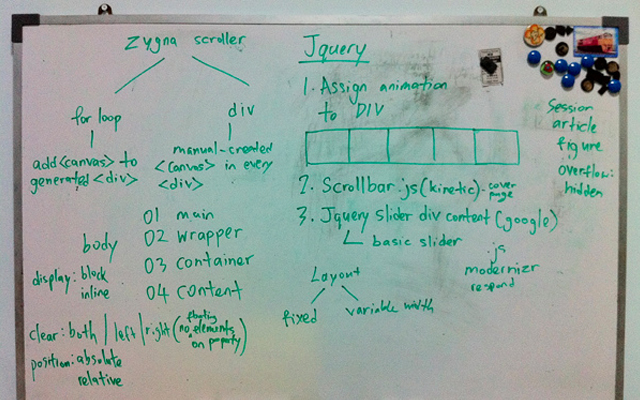 Zygna scroller
for loop
add <canvas> to
generated <div>
div
manual-created
<canvas> in every
<div>
01 main
02 wrapper
03 container
04 content
body
display: block
inline
clear: both / left / right (no floating elements
on property)
position: absolute
relative
Jquery
1. Assign animation
to DIV
2. Scrollbar.js (kinetic) - cover
page
3. Jquery slider div content (google)
basic slider
Layout
fixed
variable width
js
modernizr
respond
Session
article
figure
overflow:
hidden